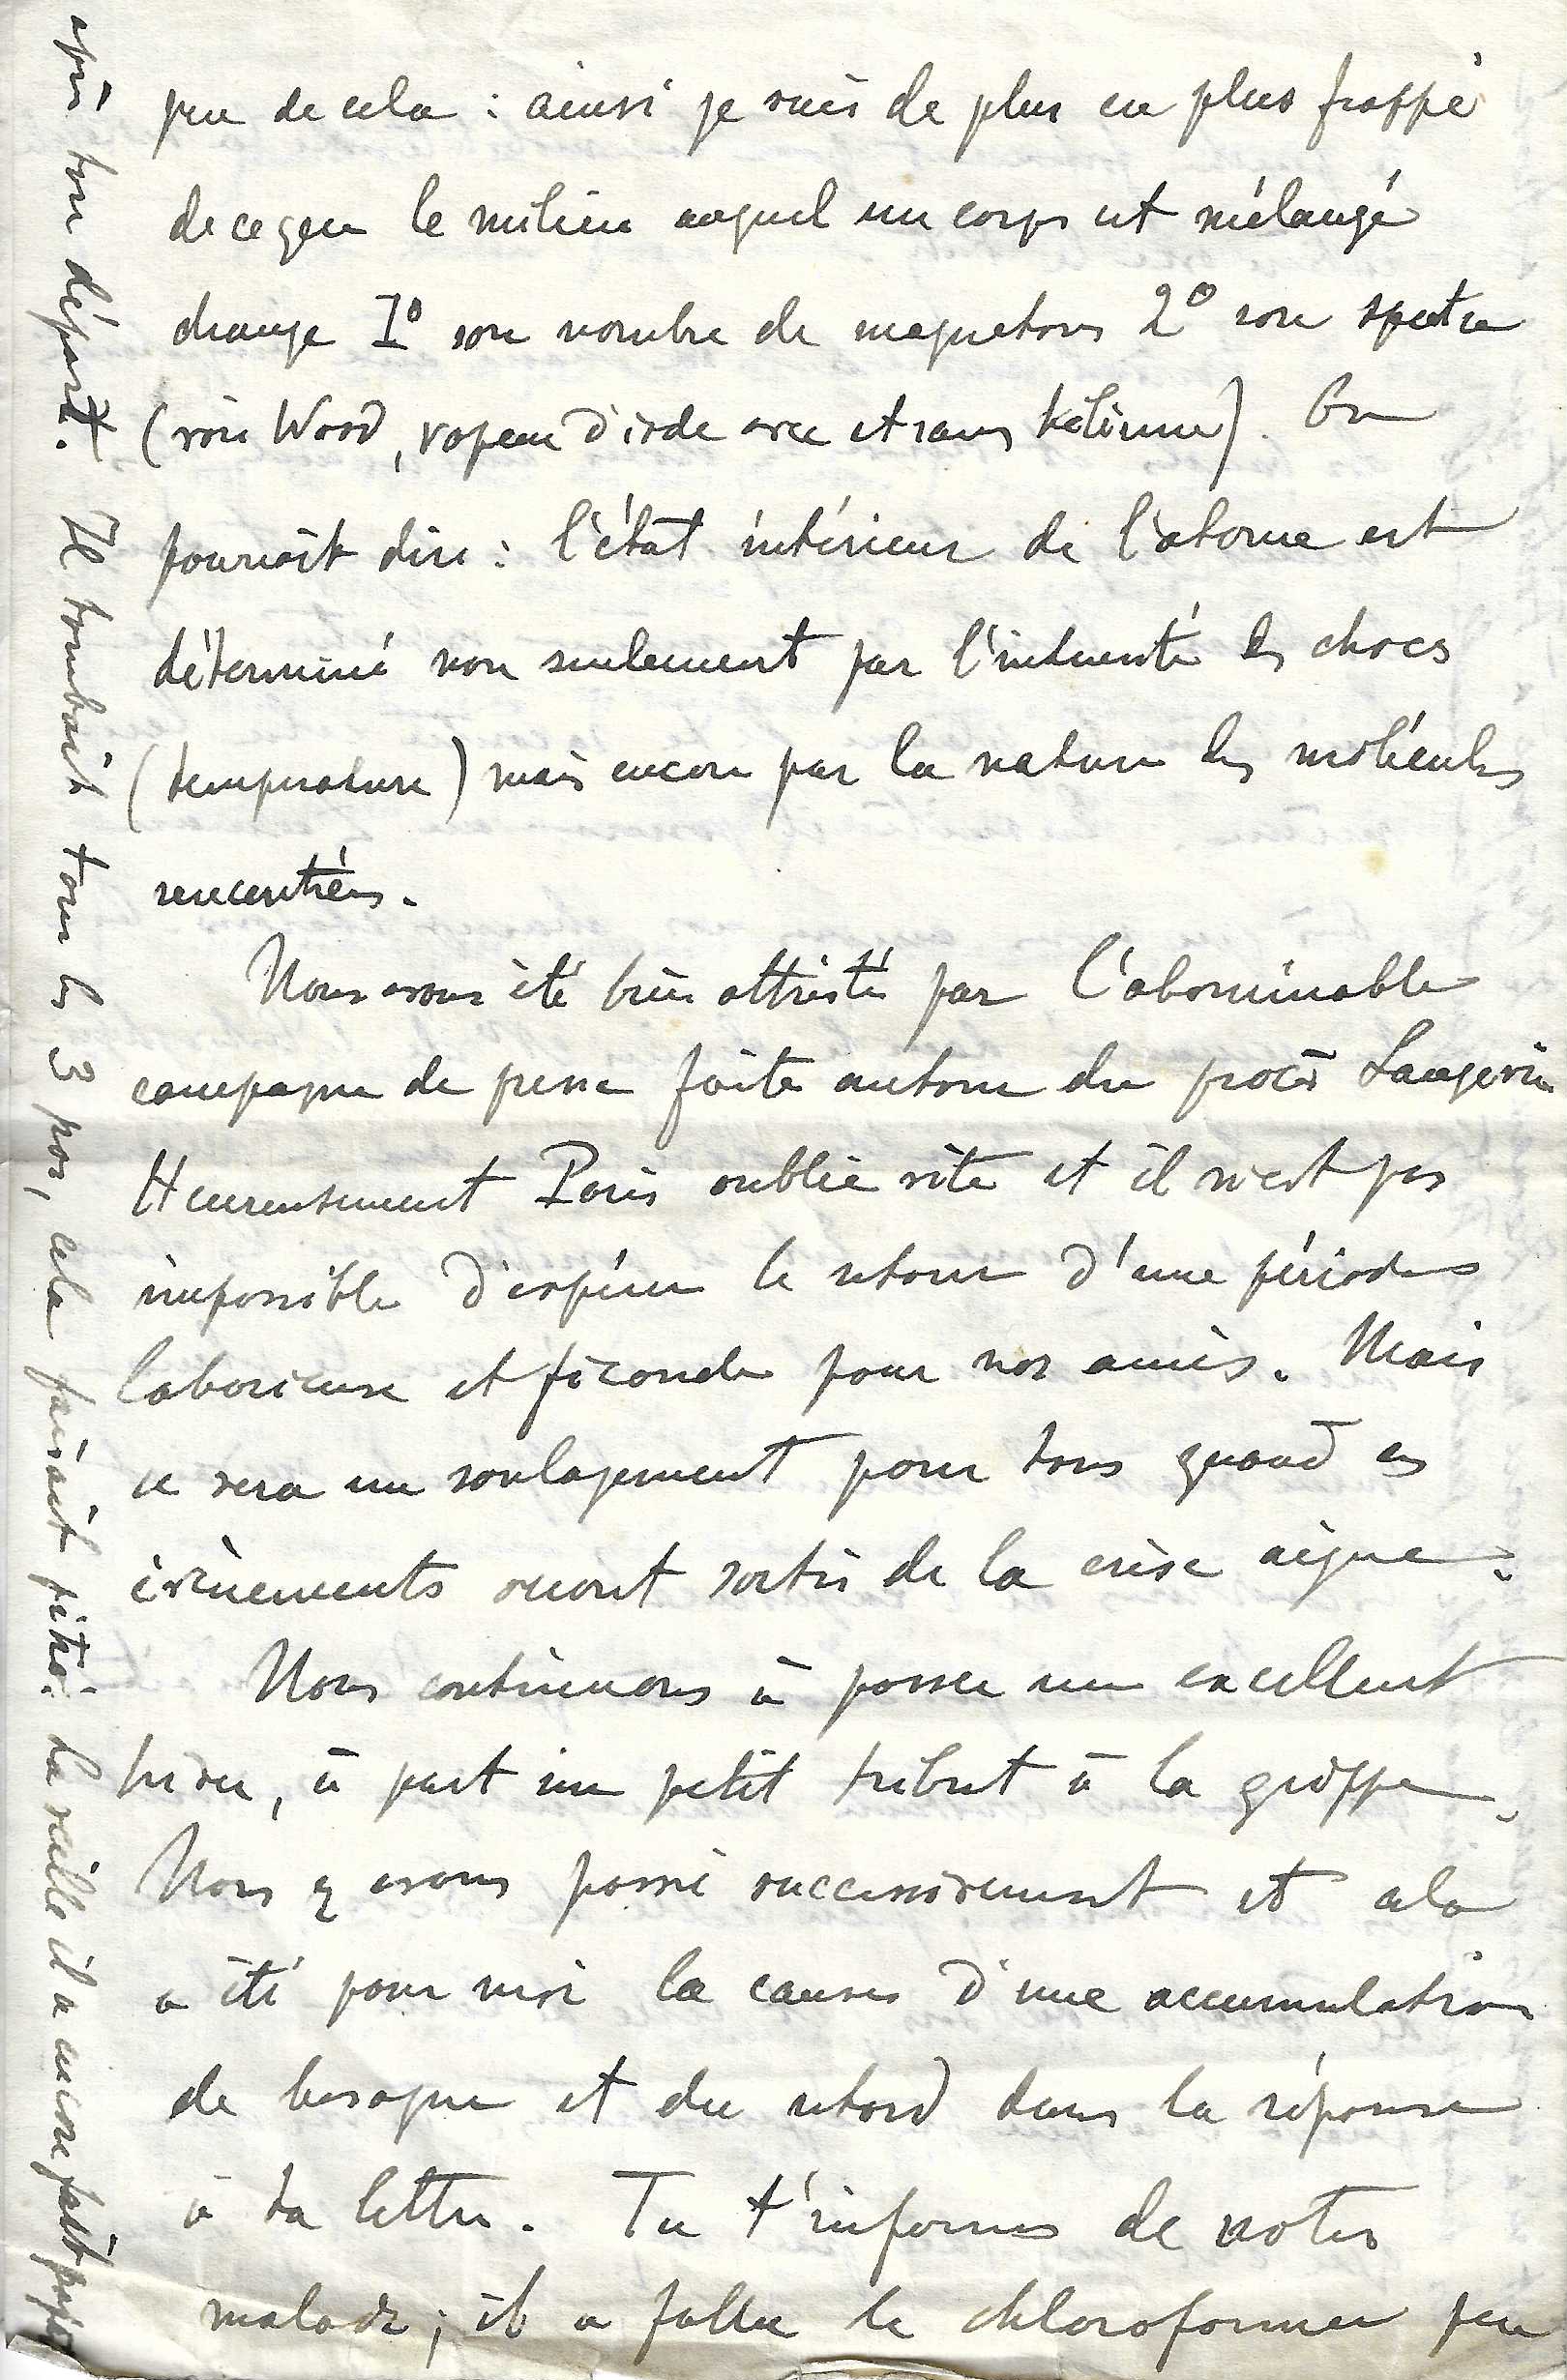 peu de cela : ainsi je suis de plus en plus frappé
de ce que le milieu auquel un corps est mélangé
change 1° son nombre de magnétons 2° son spectre
(voir Wood, vapeur d'iode avec et sans hélium). On
pourrait dire : l'état intérieur de l'atome est
déterminé non seulement par l'intensité des chocs
(température) mais encore par la nature des molécules
rencontrées.
Nous avons été bien attristés par l'abominable
campagne de presse faite autour du procès Langevin
Heureusement Paris oublie vite et il n'est pas
impossible d'espérer le retour d'une période
laborieuse et féconde pour nos amis. Mais
ce sera un soulagement pour tous quand ces
évènements seront sortis de la crise aigue.
Nous continuons à passer un excellent
hiver, à part un petit tribut à la grippe.
Nous y avons passé successivement et cela
a été pour moi la cause d'une accumulation
de besogne et du retard dans la réponse
à ta lettre. Tu t'informes de notre
malade ; il a fallu le chloroformer peu
après ton départ. Il tombait tous les 3 pas, cela faisait pitié. La veille il a encore fait